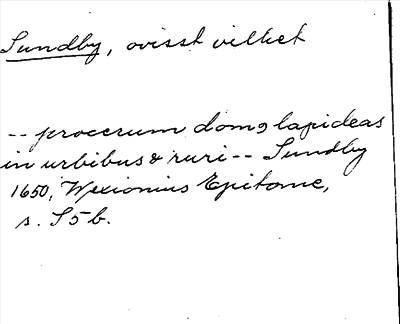 Sundby, ovisst vilket
-- procerum domꝯ lapideas
in urbibus & ruri -- Sundby
1650, Wexionius Epitome,
s. S5b.